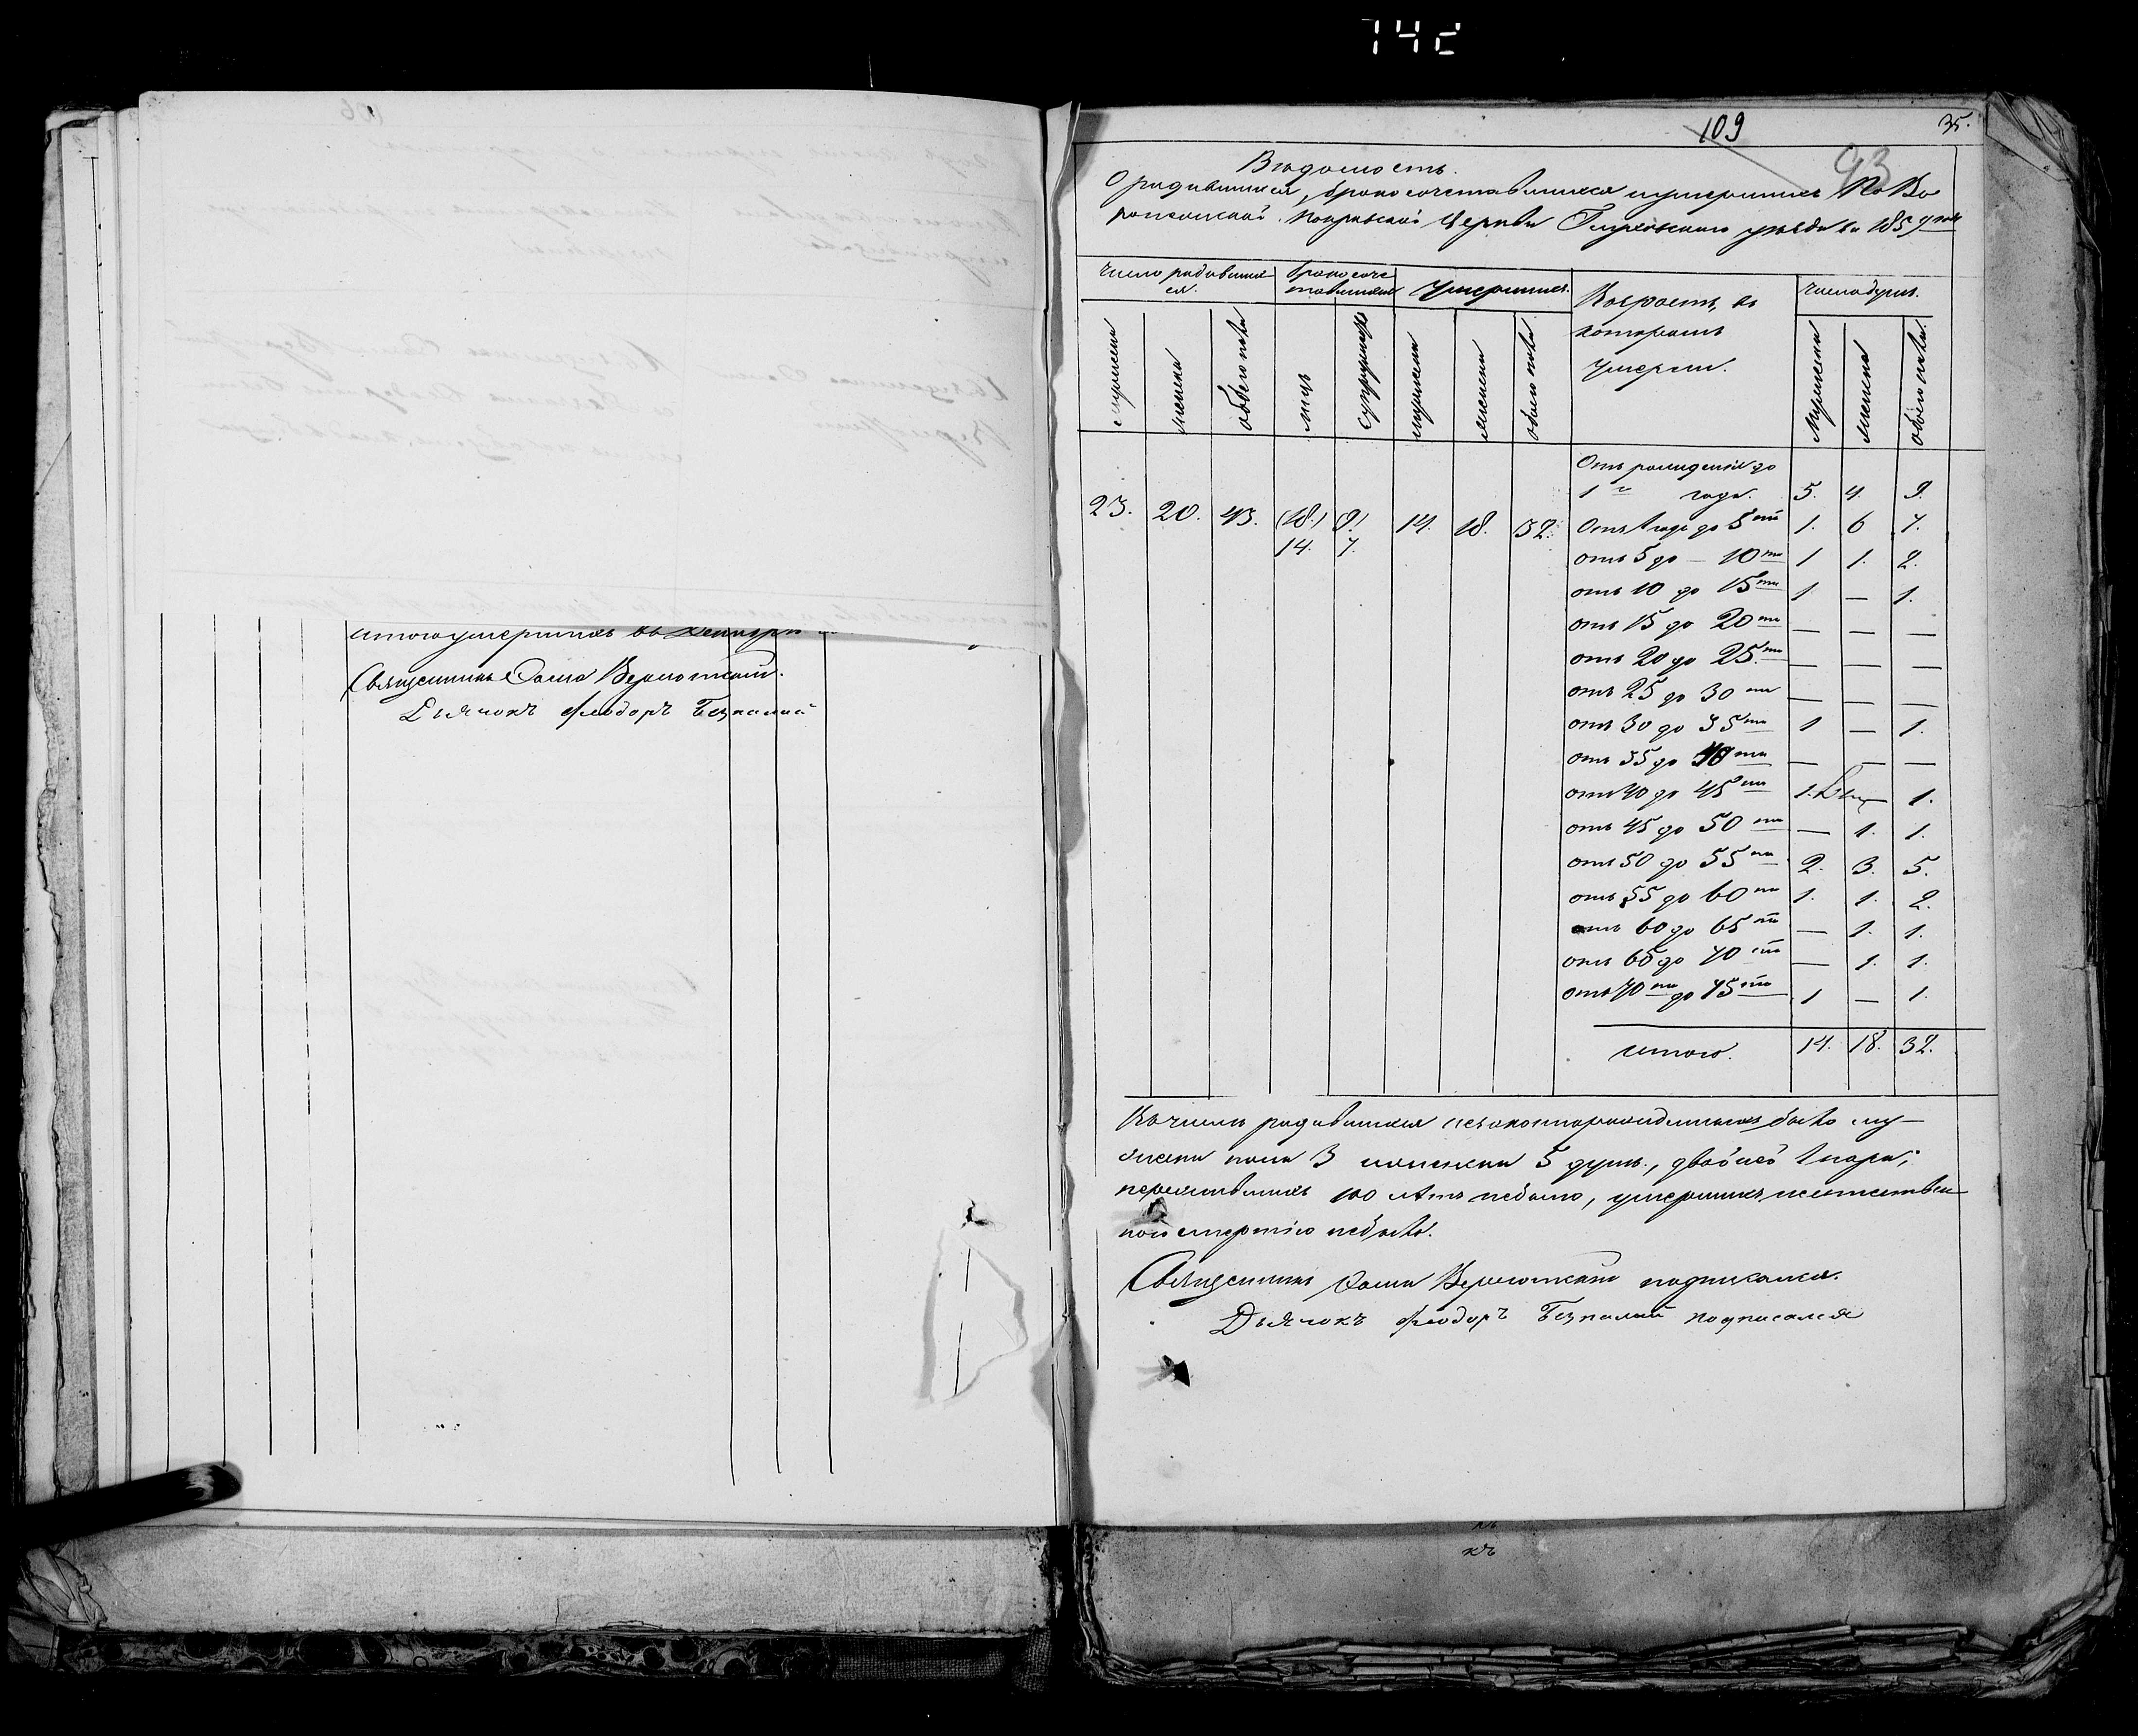 742
итого умершихъ въ
Священникъ Фома
Дьячокъ Феодоръ Безпалый
109
35.
93
Вѣдомость.
О родившихся, бракосочетавшихся и умершихъ По Во
ронковской Покровской Церкви уѣзда за 1857 годъ
Число родивших
ся.
бракосоче
тавшихся
Умершихъ.
Возрастъ, въ
которомъ
умерли.
Число душъ.
мужеска
женска
обоего пола
лицъ
супружествъ
мужеска
женска
обоего пола
Мужеска
женска
обоего пола.
Отъ рожденія до
1 го года. 5. 4. 9.
23. 20. 43. (18.) 9! 14. 18. 32. Отъ 1 года до 5ти 1. 6 7.
14. 7. отъ 5 до — 10ти 1 1. 2.
отъ 10 до 15ти 1 — 1.
отъ 15 до 20ти — — —
отъ 20 до 25ти — — —
отъ 25 до 30ти — — —
отъ 30 до 35ти 1 — 1.
отъ 35 до 40ти — — —
отъ 40 до 45ти 1. 1.
отъ 45 до 50ти — 1. 1.
отъ 50 до 55ти 2. 3. 5.
отъ 55 до 60ти 1. 1. 2.
отъ 60 до 65ти — 1. 1.
отъ 65 до 70ти — 1. 1.
отъ 70ти до 75ти 1 — 1.
итого. 14. 18. 32.
Въ числѣ родившихся незаконнорожденныхъ было му-
жеска пола 3 и женска 5 душъ, двойней 1 пара;
пережившихъ 100 лѣтъ небыло, умершихъ неестествен
ною смертію небыло.
Священникъ Фома подписался.
Дьячокъ Феодоръ Безпалый подписался